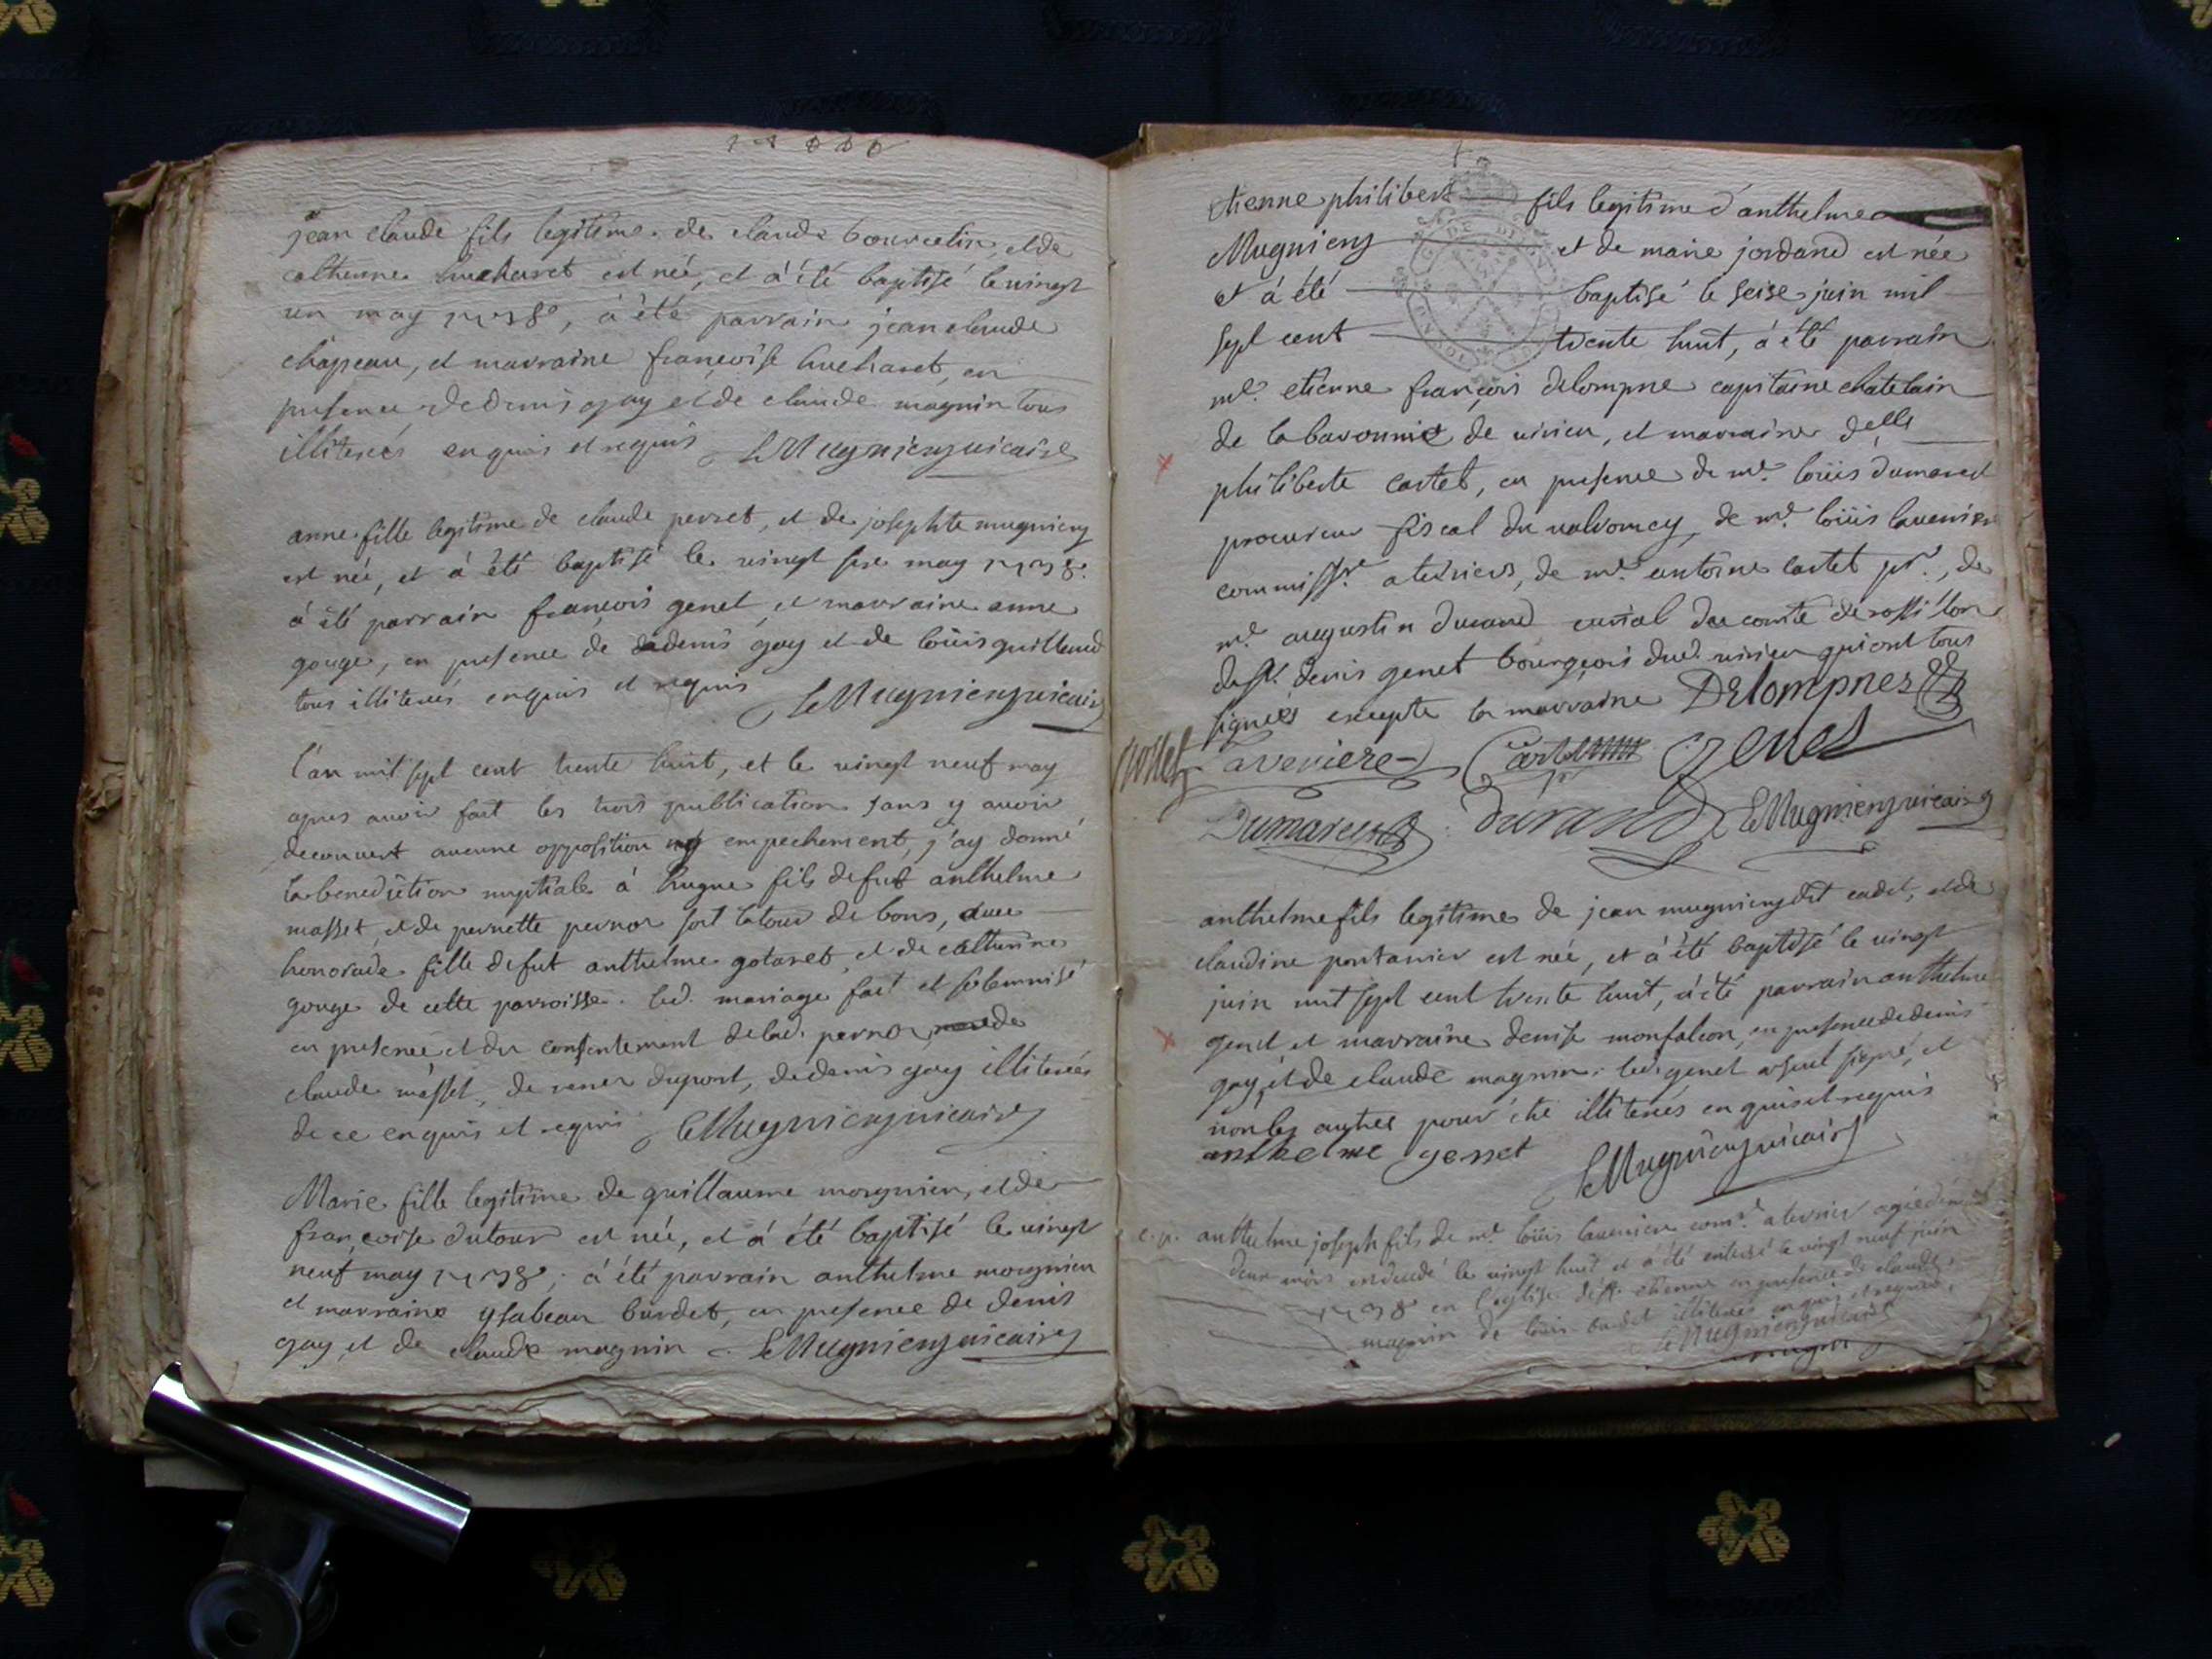 jean claude fils legitime de claude bourcelin, et de
catherine hucharet est née, et à été baptisé le vingt
un may 1738, à été parrain jean claude
chapeau, et marraine françoise hucharet, en
presence de denis gay et de claude magnin tous
illiterés enquis et requis Mugnier vicaire
anne fille legitime de claude perret, et de josephte mugnier
est née, et à été baptisé le vingt may 1738.
à été parrain françois genet, et marraine anne
gouge, en presence de denis gay et de loüis guilland
tous illiterés enquis et requis Mugnier vicaire
l'an mil sept cent trente huit, et le vingt neuf may
apres avoir fait les trois publication sans y avoir
decouvert aucune opposition ny empechement, j'ay donné
la benediction nuptiale à hugue fils de fut anthelme
masset, et de pernette pernor de bons, avec
honorade fille de fut anthelme gotaret, et de catherine
gouge de cette parroisse. led. mariage fait et solemnisé
en presence et du consentement de lad. pernor, de
claude masset, de rener dupont, de denis gay illiterés
de ce enquis et requis Mugnier vicaire
Marie fille legitime de guillaume morgnieu, et de
françoise dutour est née, et à été baptisé le vingt
neuf may 1738, à été parrain anthelme morgnieu
et marraine ysabeau burdet, en presence de denis
gay, et de claude magnin Mugnier vicaire
etienne philibert fils legitime d'anthelme
Mugnier et de marie jordand est née
et à été baptisé le seise juin mil
sept cent trente huit, à été parrain
mr. etienne françois delompne capitaine chatelain
de la baronnie de virieu, et marraine delle
philiberte cartet, en presence de mr. loüis dumarest
procureur fiscal du valromey, de mr. loüis lavenier
commissre. a terriers, de mr. antoine cartet pr., de
mr. augustin durand curial du comté de rossillon
de sr. denis genet bourgeois dud. virieu qui ont tous
signées excepte la marraine Delompnes
Laveniere Cartet Genet
Dumarest durand Mugnier vicaire
anthelme fils legitime de jean mugnier dit cadet, et de
claudine pontanier est née, et à été baptisé le vingt
juin mil sept cent trente huit, à été parrain anthelme
genet et marraine denise monfalcon, en presence de denis
gay, et de claude magnin. led. genet a seul signé, et
non les autres pour être illiterés enquis et requis
anthelme genet Mugnier vicaire
anthelme joseph fils de mr. loüis laveniere comre. a terrier agée d'un
deux mois est decedé le vingt huit et à été enterré le vingt neuf juin
1738 en l'eglise de st. etienne en presence de claude
magnin de loüis burdet illiterés enquis et requis,
Mugnier vicaire